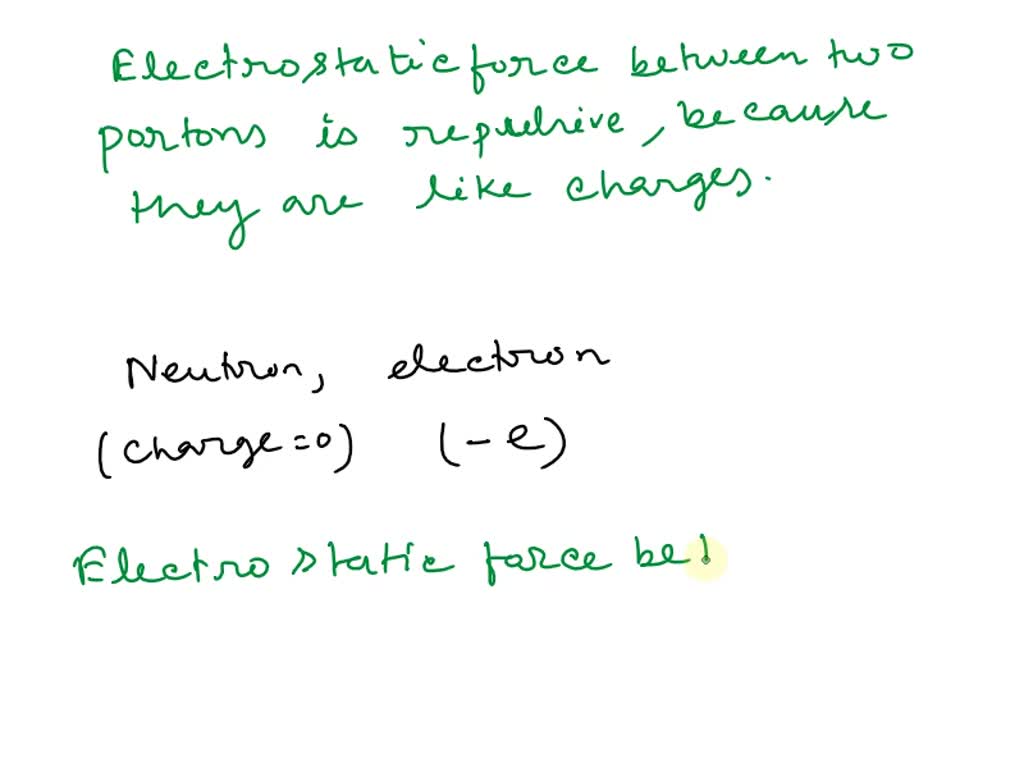 Electrostatic force between two
portons is repulsive, because
they are like charges.
Neutron, electron
(charge=0) (-e)
Electrostatic force bet